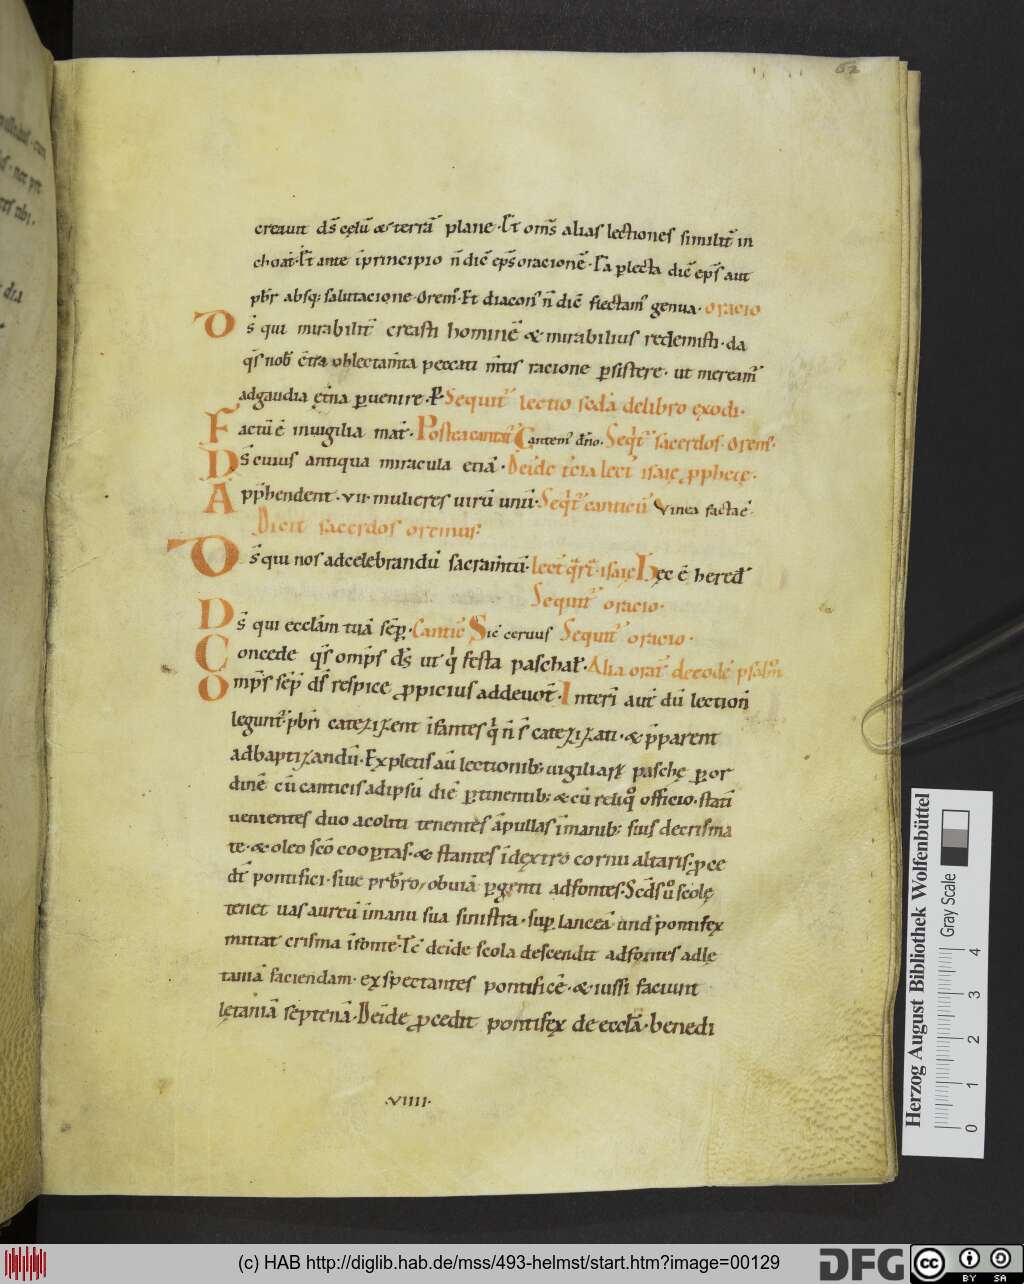 62
creauit ds̄ cęlū & terrā plane · Lc̄t om̄s alias lectiones similit̄ in
choat̄ · Lc̄t ante īprincipio n̄ diē ep̄s oracionē ·
pb̄r absq; salutacione · Orem̄ · Et diacon̄ n̄ dic̄ flectam̄ genua · oracio
Ds̄ qui mirabilit̄ creasti hominē & mirabilius redemisti · da
qs̄ nob̄ oblectam̄ta peccati m̄tis racione ꝑsistere · ut meream̄
adgaudia ęt̄na ꝑuenire · P̄ Sequit̄ lectio sc̄da delibro exodi ·
Factū ē inuigilia mat̄ · Postea cantat̄ Cantem̄ dn̄o · Seqt̄ sacerdos · Orem̄ ·
Ds̄ cuius antiqua miracula etiā · Deīde t̄cia lect̄ isaię ꝓphete ·
Apphendent · vii · mulieres uirū unū · Seqt̄ canticū Vinea facta ē
Dicit sacerdos oremus:
Ds̄ qui nos adcelebrandū sacram̄tū · lect̄ isaię Hęc ē hered̄
Sequit̄ oracio ·
Ds̄ qui eccłam tuā sēp̄ · Cantic̄ Sic̄ ceruus Sequit̄ oracio ·
Concede qs̄ omp̄s ds̄ ut q̄ festa paschal̄ · Alia orat̄ de eodē psalm̄
Omp̄s sēp̄ ds̄ respice ꝓpicius addeuot̄ · Interī aut̄ dū lection̄
legunt̄ · pb̄ri catezizent īfantes q̄ n̄ s̄ catezizati · & p̄parent
adbaptizandū · Expletis aū lectionib; uigiliarꝝ paschę ꝑ or
dinē cū canticis adipsū diē ꝑtinentib; & cū reliqͦ officio · statī
uenientes duo acoliti tenentes āpullas īmanib; suis decrisma
te · & oleo sc̄o cooꝑtas · & stantes īdextro cornu altaris · ꝓce
dt̄ pontifici · siue pr̄b̄ro, obuiā ꝑgenti adfontes · Sc̄ds ū scolę
tenet uas aureū īmanu sua sinistra · sup̄ lanceā und̄ pontifex
mittat crisma īfonte · Tc̄ deīde scola descendit adfontes adlę
taniā faciendam · exspectantes pontificē · & iussi faciunt
lętaniā septenā · Deīde ꝓcedit pontifex de ecclā · benedi
·VIIII·
Herzog August Bibliothek Wolfenbüttel
Gray Scale
0 1 2 3 4
(c) HAB http://diglib.hab.de/mss/493-helmst/start.htm?image=00129
DFG
cc BY SA